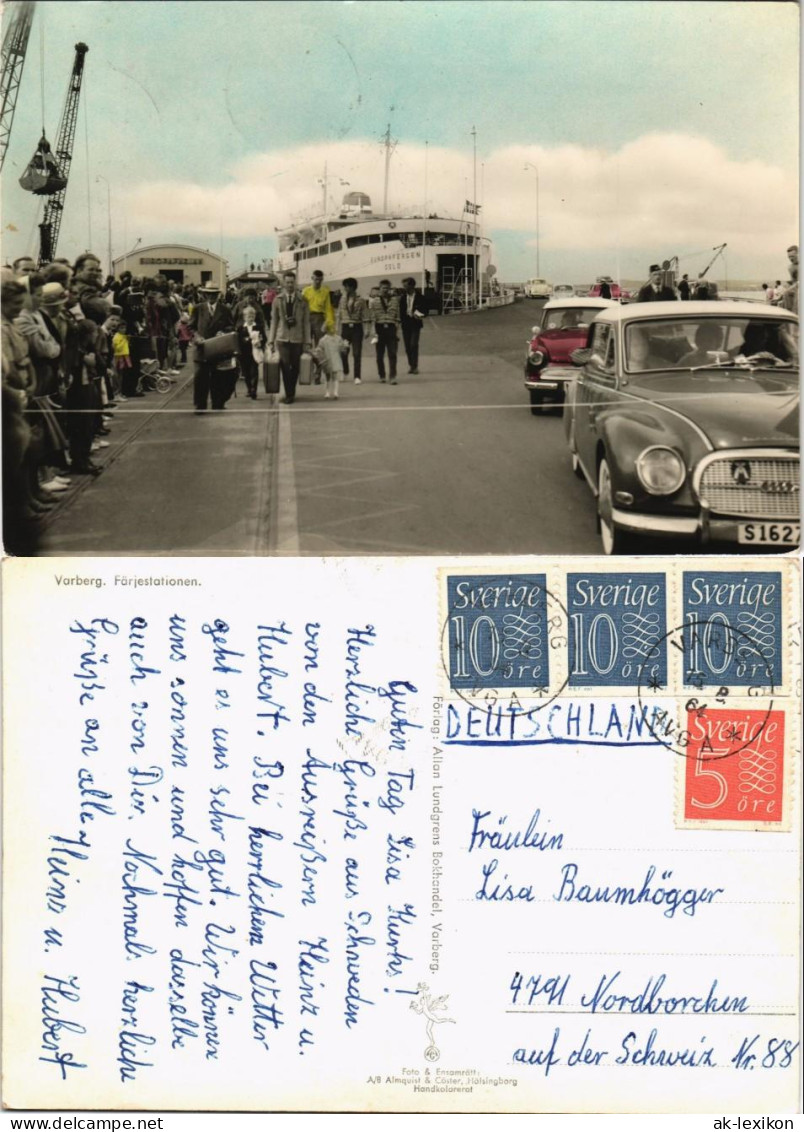 EUROPAFÄRJAN
EUROPAFERGEN
S1627
Varberg. Färjestationen.
Guten Tag Lisa Kurts!
Herzliche Grüße aus Schweden
von den Ausreißern Heinz u.
Hubert. Bei herrlichem Wetter
geht es uns sehr gut. Wir können
uns sonnen und hoffen dasselbe
auch von Dir. Nochmals herzliche
Grüße an alle Heinz u. Hubert
Förlag: Allan Lundgrens Bokhandel, Varberg.
Foto & Ensamrätt:
A/B Almquist & Cöster, Hälsingborg
Handkolorerat
Sverige
10 öre
Sverige
10 öre
Sverige
10 öre
Sverige
5 öre
VARBERG
AVG A
VARBERG
64
AVG A
DEUTSCHLAND
Fräulein
Lisa Baumhögger
4791 Nordborchen
auf der Schweiz Nr. 88
ak-lexikon
ak-lexikon.com